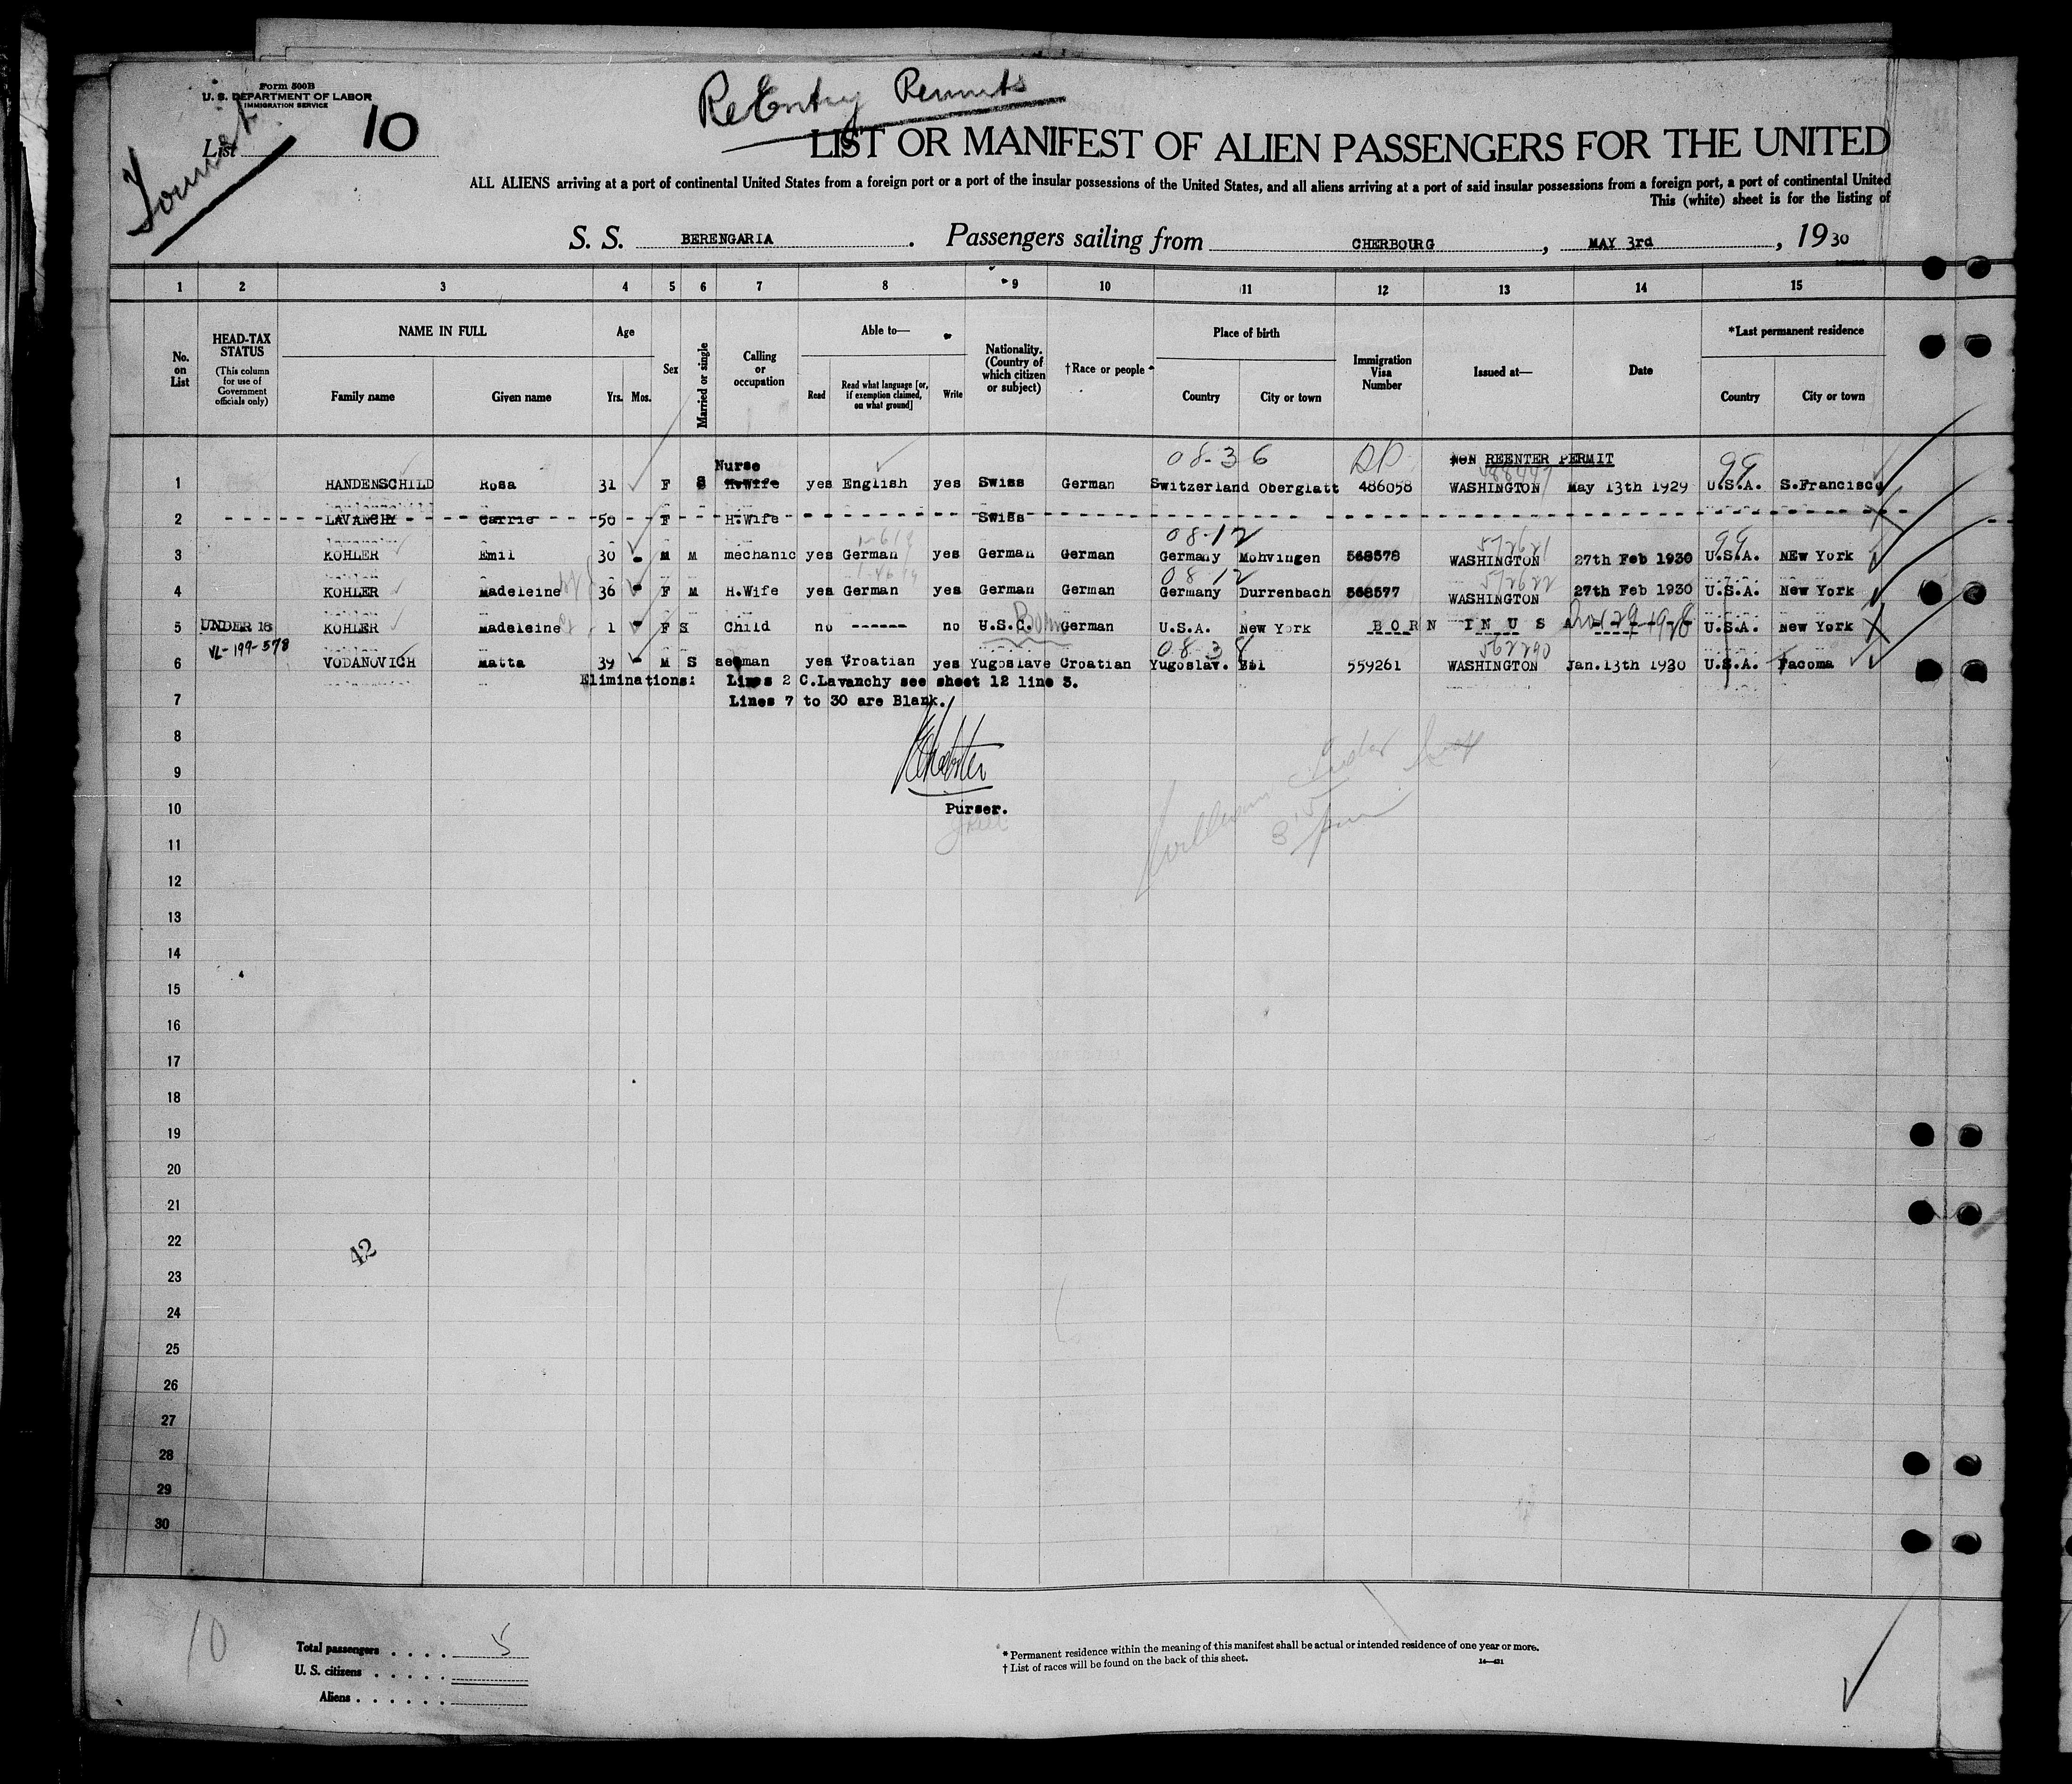 Form 500B
U. S. DEPARTMENT OF LABOR
IMMIGRATION SERVICE
ReEntry Permits
List 10
Tourist
LIST OR MANIFEST OF ALIEN PASSENGERS FOR THE UNITED
ALL ALIENS arriving at a port of continental United States from a foreign port or a port of the insular possessions of the United States, and all aliens arriving at a port of said insular possessions from a foreign port, a port of continental United
This (white) sheet is for the listing of
S. S. BERENGARIA. Passengers sailing from CHERBOURG, MAY 3rd, 1930
1 2 3 4 5 6 7 8 9 10 11 12 13 14 15
No. on List
HEAD-TAX STATUS (This column for use of Government officials only)
NAME IN FULL
Family name Given name
Age
Yrs. Mos.
Sex
Married or single
Calling or occupation
Able to—
Read
Read what language [or, if exemption claimed, on what ground]
Write
Nationality. (Country of which citizen or subject)
†Race or people
Place of birth
Country City or town
Immigration Visa Number
Issued at—
Date
*Last permanent residence
Country City or town
Nurse 08-36 NON REENTER PERMIT 99
1 HANDENSCHILD Rosa 31 F S H.Wife yes English yes Swiss German Switzerland Oberglatt 486058 WASHINGTON May 13th 1929 U.S.A. S.Francisco
2 LAVANCHY Carrie 50 F H.Wife Swiss
08-12 572621 99
3 KOHLER Emil 30 M M mechanic yes German yes German German Germany Mohvingen 568578 WASHINGTON 27th Feb 1930 U.S.A. NEw York
08-12 572622
4 KOHLER Madeleine 36 F M H.Wife yes German yes German German Germany Durrenbach 568577 WASHINGTON 27th Feb 1930 U.S.A. New York
5 UNDER 16 KOHLER Madeleine 1 F S Child no ------ no U.S.C. Born German U.S.A. New York BORN IN U S A Nov 29-1928 U.S.A. New York
VL-199-578 08-38 562290
6 VODANOVICH Matta 39 M S seaman yes Vroatian yes Yugoslave Croatian Yugoslav. 559261 WASHINGTON Jan.13th 1930 U.S.A. Tacoma
Eliminations: Lines 2 C.Lavanchy see sheet 12 line 3.
7 Lines 7 to 30 are Blank.
8
9
10 Purser.
11
12
13
14
15
16
17
18
19
20
21
22
42
23
24
25
26
27
28
29
30
10
Total passengers . . . . 5
U. S. citizens . . . . .
Aliens . . . . . .
* Permanent residence within the meaning of this manifest shall be actual or intended residence of one year or more.
† List of races will be found on the back of this sheet.
14—421